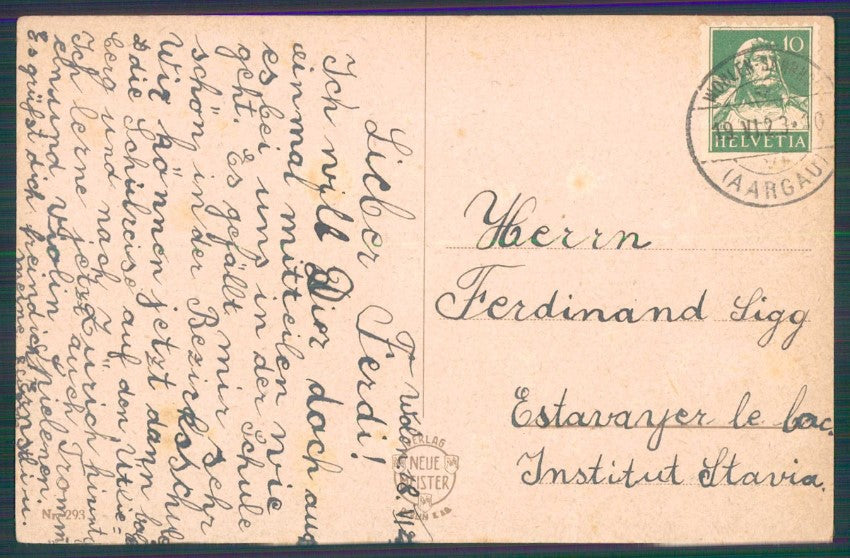 Wohlen 18. VI. 23
Lieber Ferdi!
Ich will Dir doch auch
einmal mitteilen wie
es bei uns in der Schule
geht. Es gefällt mir sehr
schön in der Bezirksschule
Wir können jetzt dann bald
die Schulreise auf den Ütli=
berg und nach Zürich
Ich lerne jetzt auch Tromm
eln und Violin
Es grüsst dich freundlich
10
HELVETIA
WOHLEN
19.VI.23.10
(AARGAU)
Herrn
Ferdinand Sigg
Estavayer le lac.
Institut Stavia.
VERLAG
NEUE
MEISTER
Nr. 293